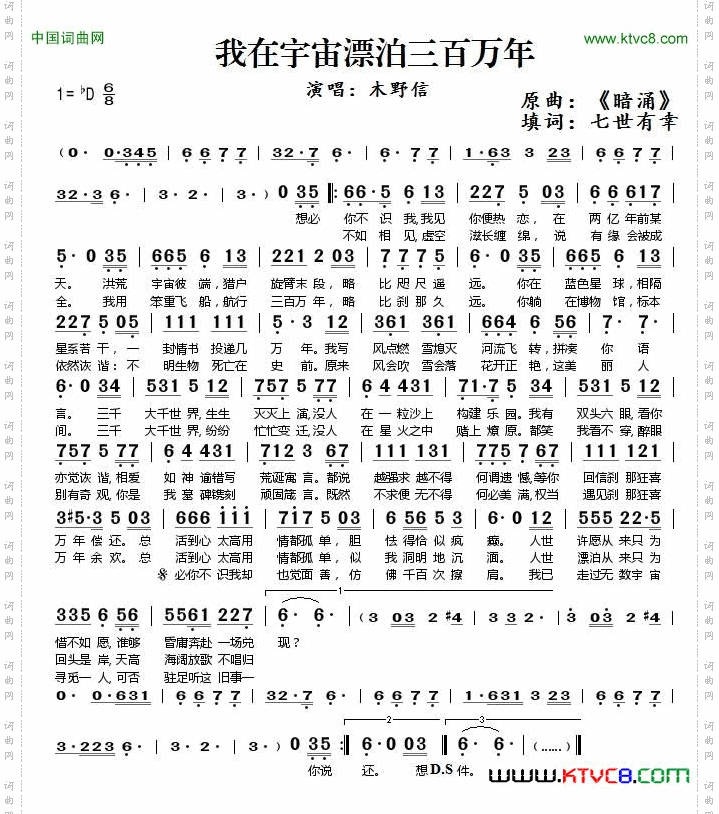 中国词曲网
我在宇宙漂泊三百万年
www.ktvc8.com
1= ♭D 6/8
演唱：木野信
原曲：《暗涌》
填词：七世有幸
(0· 0·345 | 6 6 7 7 | 32·7 6· | 6· 7 7 | 1·63 3 23 | 6 6 7 7 |
32·3 6· | 3· 2· | 3· ) 0 35 ‖: 66·5 6 13 | 227 5 03 | 6 617 |
想必 你不 识 我,我见 你便热 恋，在 两 亿 年前某
不如 相 见,虚空 滋长缠 绵，说 有 缘 会被成
5· 0 35 | 665 6 13 | 221 2 03 | 7 7 7 5 | 6· 0 35 | 665 6 13 |
天。 洪荒 宇宙彼 端,猎户 旋臂末 段，略 比 咫 尺 遥 远。 你在 蓝色星 球，相隔
全。 我用 笨重飞 船,航行 三百万 年，略 比 刹 那 久 远。 你躺 在博物 馆，标本
227 5 05 | 111 111 | 5· 3 12 | 361 361 | 664 6 56 | 7· 7· |
星系若 干，一 封情书 投递几 万 年。我写 风点燃 雪熄灭 河流飞 转，拼凑 你 语
依然诙 谐：不 明生物 死亡在 史 前。原来 风会吹 雪会落 花开正 艳，这美 丽 人
6· 0 34 | 531 5 12 | 757 5 77 | 6 4 431 | 71·7 5 34 | 531 5 12 |
言。 三千 大千世 界,生生 灭灭上 演,没人 在 一 粒沙上 构建 乐 园。我有 双头六 眼,看你
间。 三千 大千世 界,纷纷 忙忙变 迁,没人 在 星 火之中 赌上 燎 原。都笑 我看不 穿,醉眼
757 5 77 | 6 4 431 | 712 3 67 | 111 131 | 775 7 67 | 111 131 |
亦觉诙 谐,相爱 如 神 谕错写 荒诞寓 言。都说 越强求 越不得 何谓遗 憾,等你 回信刹 那狂喜
别有奇 观,你是 我 墓 碑镌刻 顽固箴 言。既然 不求便 无不得 何必美 满,权当 遇见刹 那狂喜
3#5·3 5 03 | 666 111 | 717 5 03 | 6 5 3 5 | 6· 0 12 | 555 22·5 |
万 年 偿 还。总 活到心 太高用 情都孤 单，胆 怯 得 恰 似 疯 癫。 人世 许愿从 来只为
万 年 余 欢。总 活到心 太高用 情都孤 单，似 我 洞 明 地 沉 湎。 人世 漂泊从 来只为
𝄋 必你不 识我却 也觉面 善，仿 佛 千 百 次 擦 肩。 我已 走过无 数宇 宙
335 6 56 | 5561 227 | 6· 6· | (3 03 2 #4 | 3 3 2· | 3· 03 2 #4 |
1
惜不如 愿,谁够 昏庸奔赴 一场兑 现？
回头是 岸,天高 海阔放歌 不唱归
寻觅一 人,可否 驻足听这 旧事一
0· 0·631 | 6 6 7 7 | 32·7 6· | 6 6 7 7 | 1·6123 3 23 | 6 6 7 7 |
3·223 6· | 3· 2· | 3· ) 0 35 :‖ 6· 0 03 | 6· 6· | (……) ‖
2
3
你说 还。 想 D.S 件。
www.KTVC8.com
词曲网